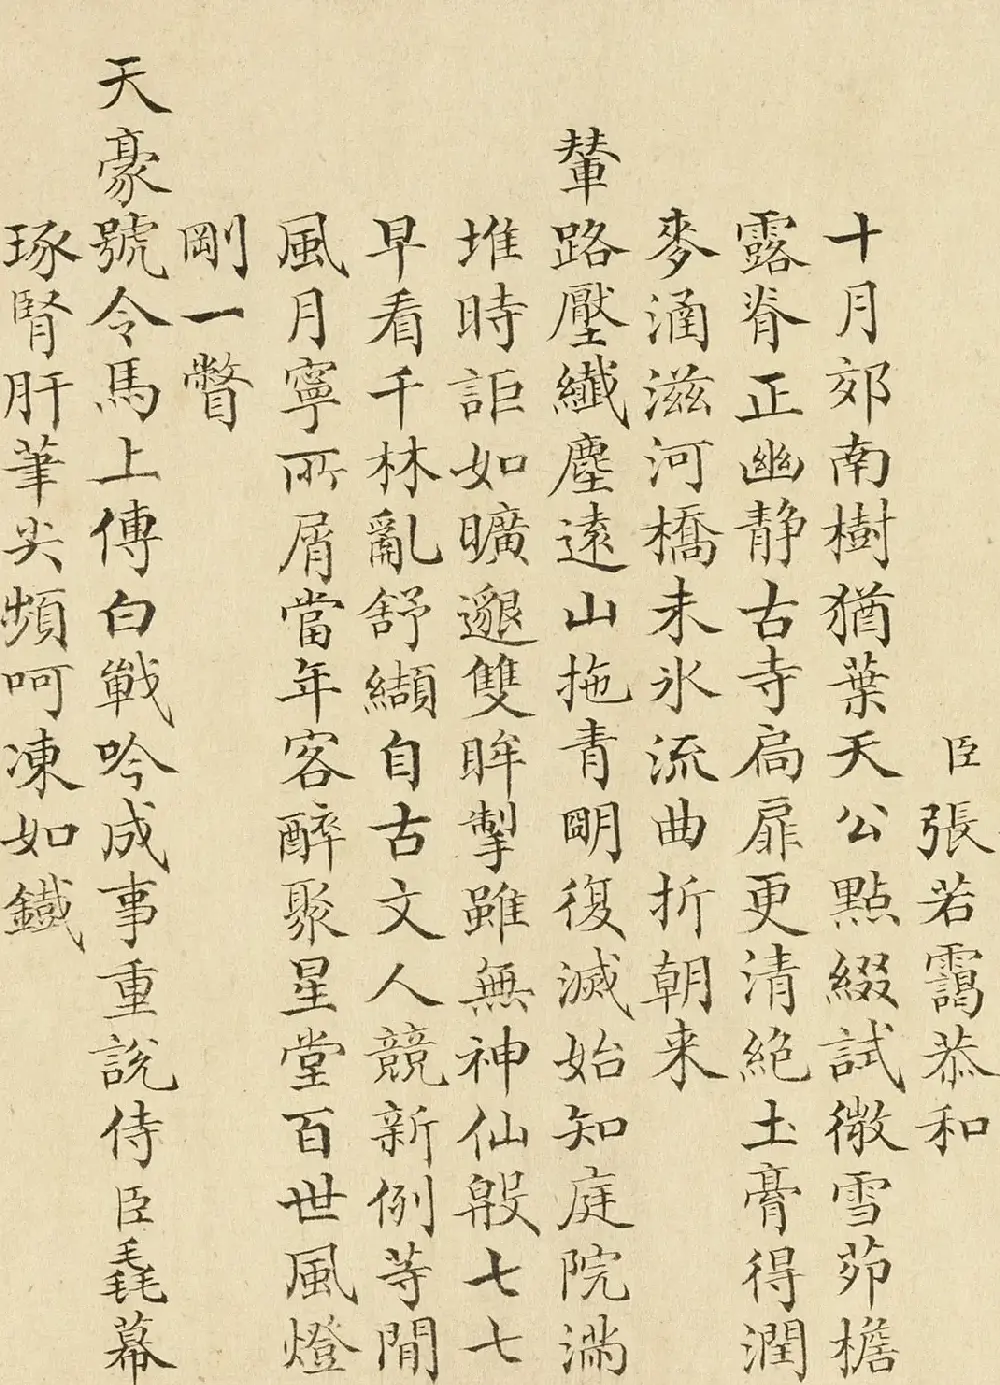 臣張若靄恭和
十月郊南樹猶葉天公點綴試微雪茆檐
露脊正幽静古寺扃扉更清絶土膏得潤
麥涵滋河橋未氷流曲折朝来
輦路壓纖塵遠山拖青明復滅始知庭院滿
堆時詎如曠邈雙眸掣雖無神仙殷七七
早看千林亂舒纈自古文人競新例等閒
風月寧所屑當年客醉聚星堂百世風燈
剛一瞥
天豪號令馬上傳白戰吟成事重說侍臣毳幕
琢腎肝筆尖頻呵凍如鐵